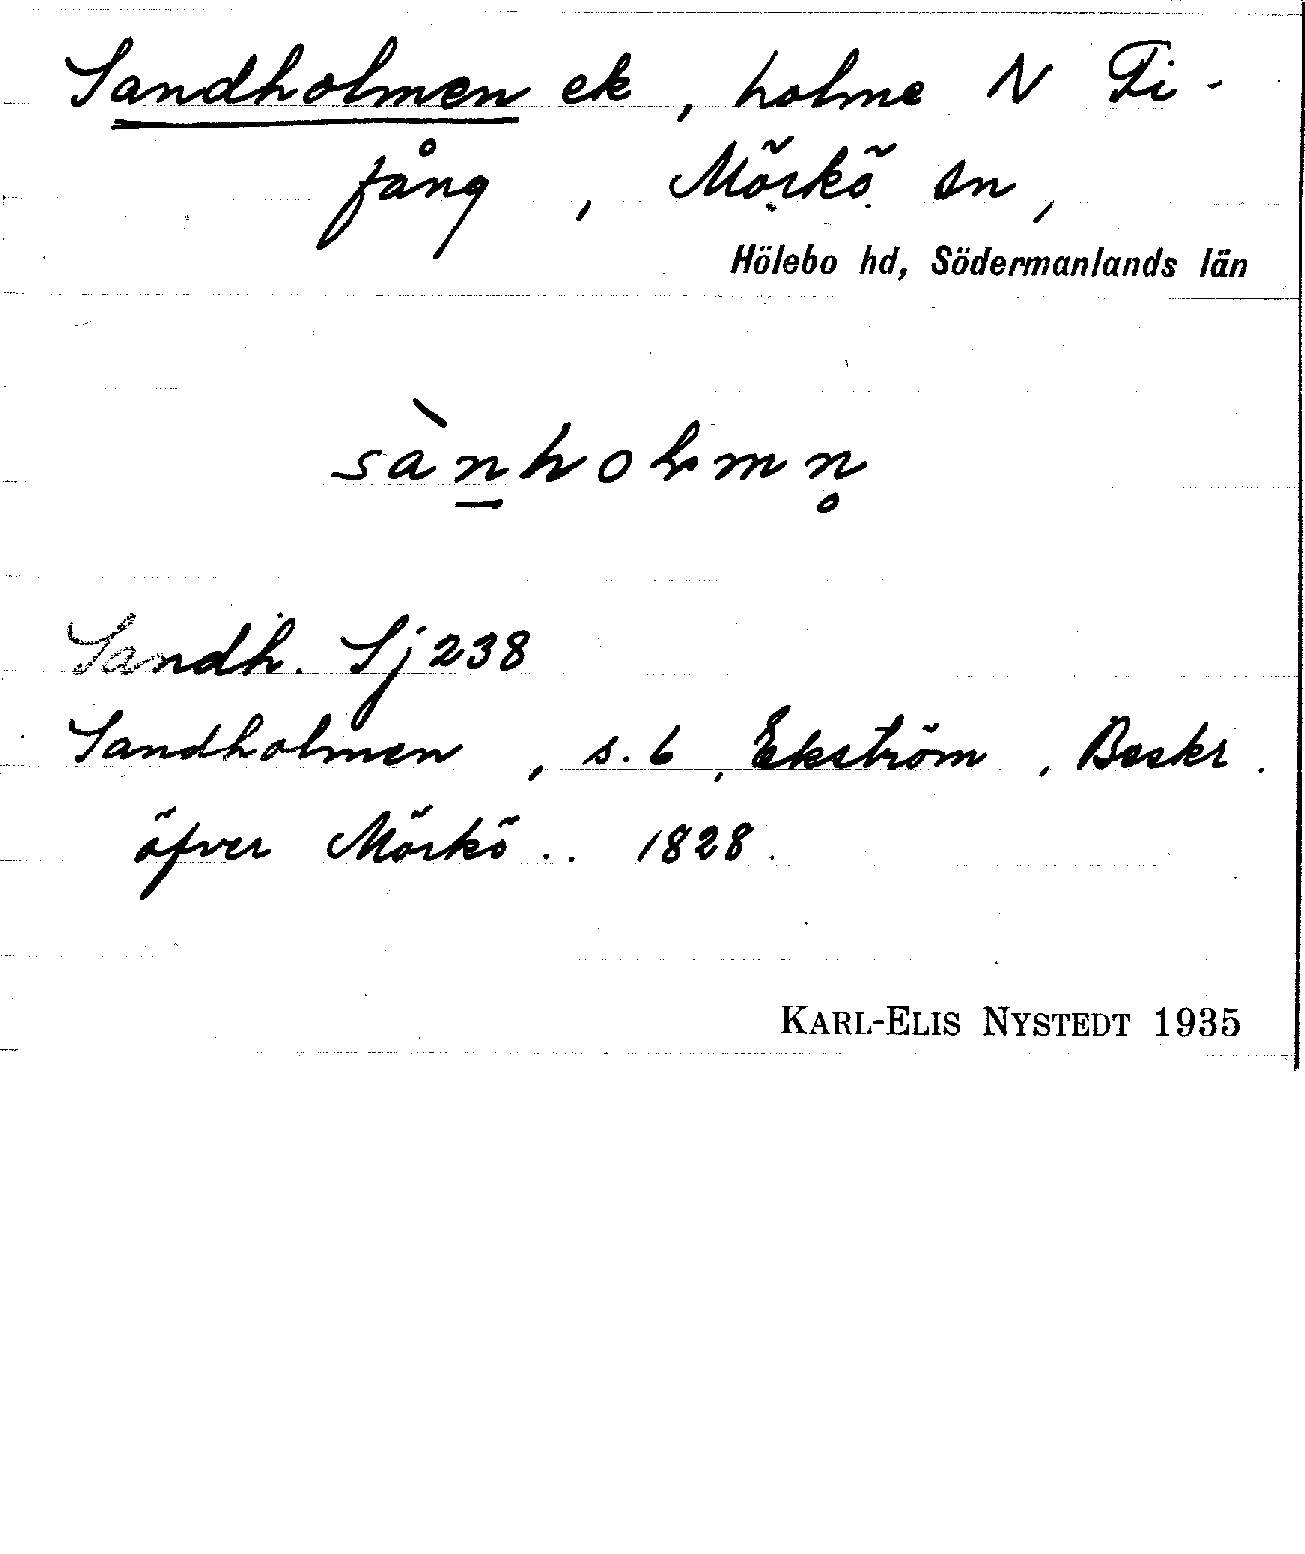 Sandholmen ek, holme N Ti-
fång, Mörkö sn,
Hölebo hd, Södermanlands län
sànhoḷmn̥
Sandh. Sj 238
Sandholmen, s. 6, Ekström, Beskr.
öfver Mörkö.. 1828.
KARL-ELIS NYSTEDT 1935